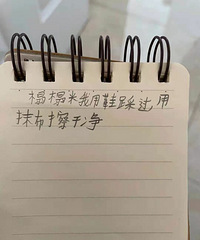 榻榻米我用鞋踩过 用
抹布擦干净